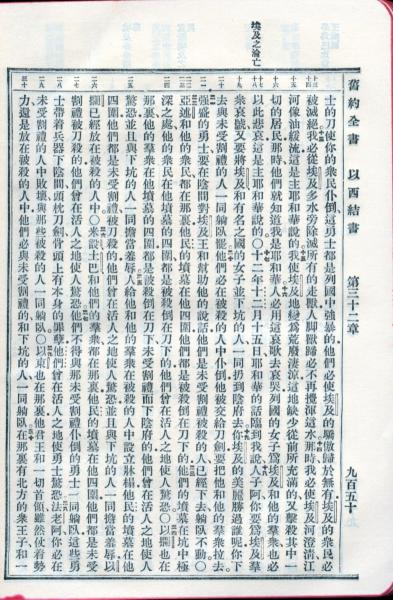 舊約全書　以西結書　第三十二章　九百五十
埃及之淪亡
士的刀使你的衆民仆倒這勇士都是列國中強暴的他們必使埃及的驕傲歸於無有埃及的衆民必
被滅絕我必從埃及多水旁除滅所有的走獸人脚獸蹄必不再攪渾這水那時我必使埃及河澄清江
河像油緩流這是主耶和華說的我使埃及地變為荒廢淒涼這地缺少從前所充滿的又擊殺其中一
切的居民那時他們就知道我是耶和華人必用這哀歌去哀哭列國的女子為埃及和他的羣衆也必
以此悲哀這是主耶和華說的〇十二年十二月十五日耶和華的話臨到我說人子阿你要為埃及羣
衆哀號又要將埃及和有名之國的女子並下坑的人一同扔到陰府去你埃及的美麗勝過誰呢你下
去與未受割禮的人一同躺臥罷他們必在被殺的人中仆倒他被交給刀劍要把他和他的羣衆拉去
強盛的勇士要在陰間對埃及王和幫助他的說話他們是未受割禮被殺的人已經下去躺臥不動〇
亞述和他的衆民都在那裏他民的墳墓在他四圍他們都是被殺倒在刀下的他們的墳墓在坑中極
深之處他的衆民在他墳墓的四圍都是被殺倒在刀下的他們曾在活人之地使人驚恐〇以攔也在
那裏他的羣衆在他墳墓的四圍都是被殺倒在刀下未受割禮而下陰府的他們曾在活人之地使人
驚恐並且與下坑的人一同擔當羞辱人給他和他的羣衆在被殺的人中設立牀榻他民的墳墓在他
四圍他們都是未受割禮被刀殺的他們曾在活人之地使人驚恐並且與下坑的人一同擔當羞辱以
攔已經放在被殺的人中〇米設土巴和他們的羣衆都在那裏他民的墳墓在他四圍他們都是未受
割禮被刀殺的他們曾在活人之地使人驚恐他們不得與那未受割禮仆倒的勇士一同躺臥這些勇
士帶着兵器下陰間頭枕刀劍骨頭上有本身的罪孽他們曾在活人之地使勇士驚恐法老阿你必在
未受割禮的人中敗壞與那些被殺的人一同躺臥〇以東也在那裏他君王和一切首領雖然仗着勢
力還是放在被殺的人中他們必與未受割禮的和下坑的人一同躺臥在那裏有北方的衆王子和一